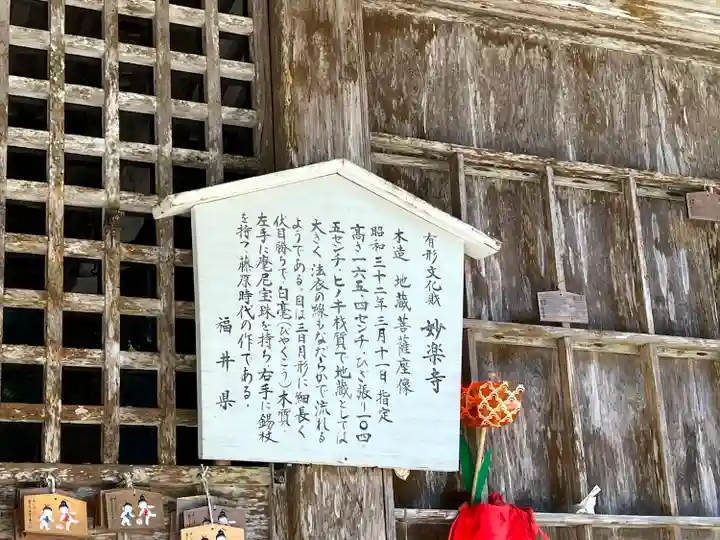 有形文化財 妙楽寺
木造 地蔵菩薩座像
昭和三十二年三月十一日指定
高さ一六五・四センチ、ひざ張り一〇四・
五センチ、ヒノキ材質で地蔵としては
大きく、法衣の線もなだらかで流れる
ようである。目は三日月形に細長く
伏目勝ちで、白毫(びゃくごう)木質、
左手に麾尼宝珠を持ち右手に錫杖
を持つ、藤原時代の作である。
福井県